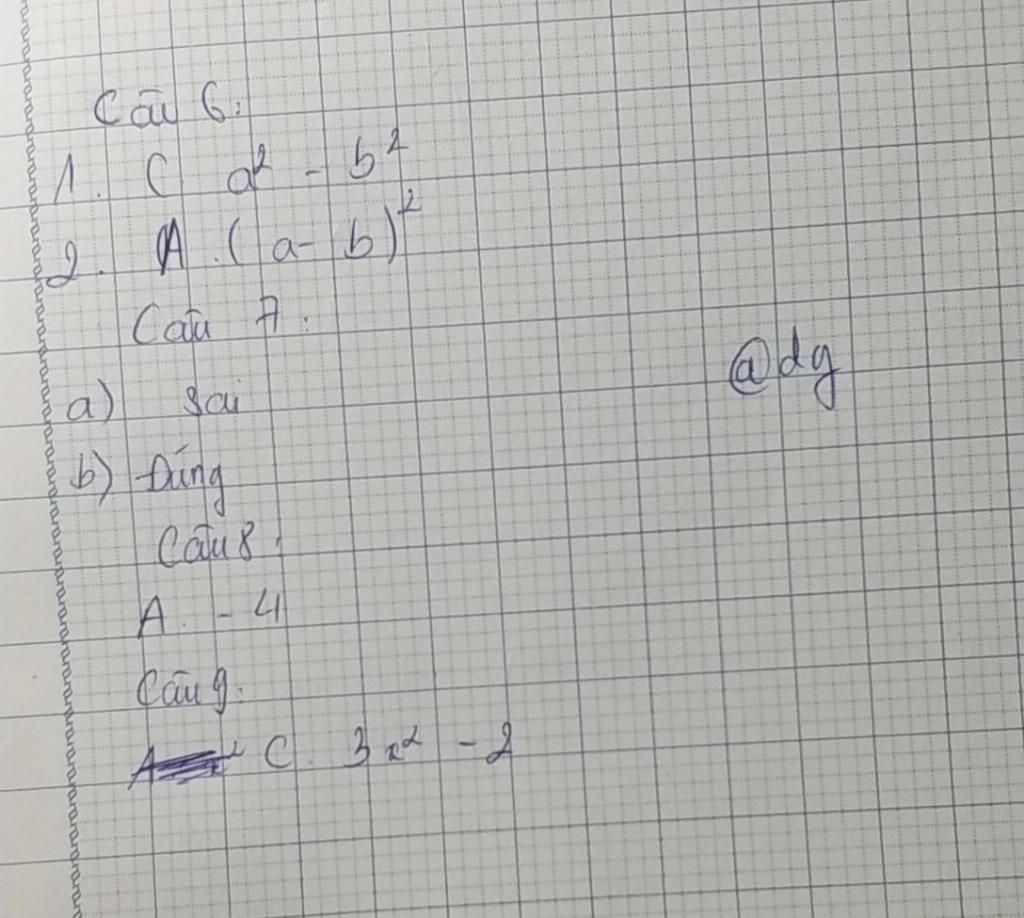 Câu 6:
1. C a² - b²
2. A. (a - b)²
Câu 7:
a) Sai
b) Đúng
@dg
Câu 8:
A. - 4
Câu 9:
C. 3x² - 2